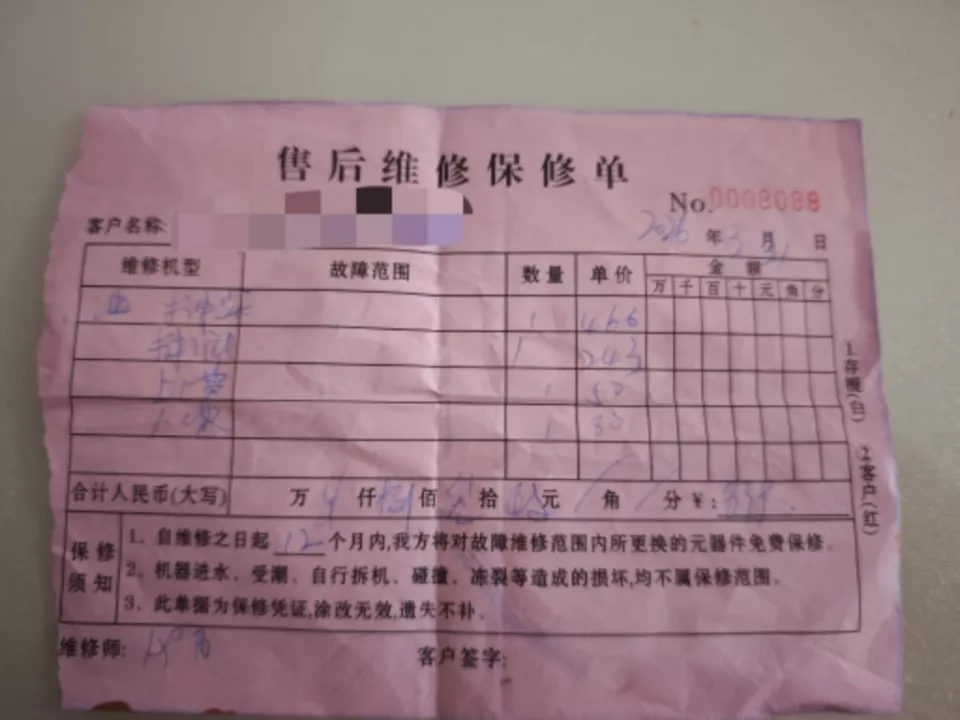 售后维修保修单
No.0008088
客户名称:
2026年3月31日
维修机型 故障范围 数量 单价 金额
万千百十元角分
1 466
1 243
上门费 1 50
1 80
合计人民币(大写) 万 仟 捌佰 拾 元 角 分¥:
保修须知
1、自维修之日起12个月内,我方将对故障维修范围内所更换的元器件免费保修。
2、机器进水、受潮、自行拆机、碰撞、冻裂等造成的损坏,均不属保修范围。
3、此单据为保修凭证,涂改无效,遗失不补。
维修师:
客户签字:
1.存根(白)
2.客户(红)